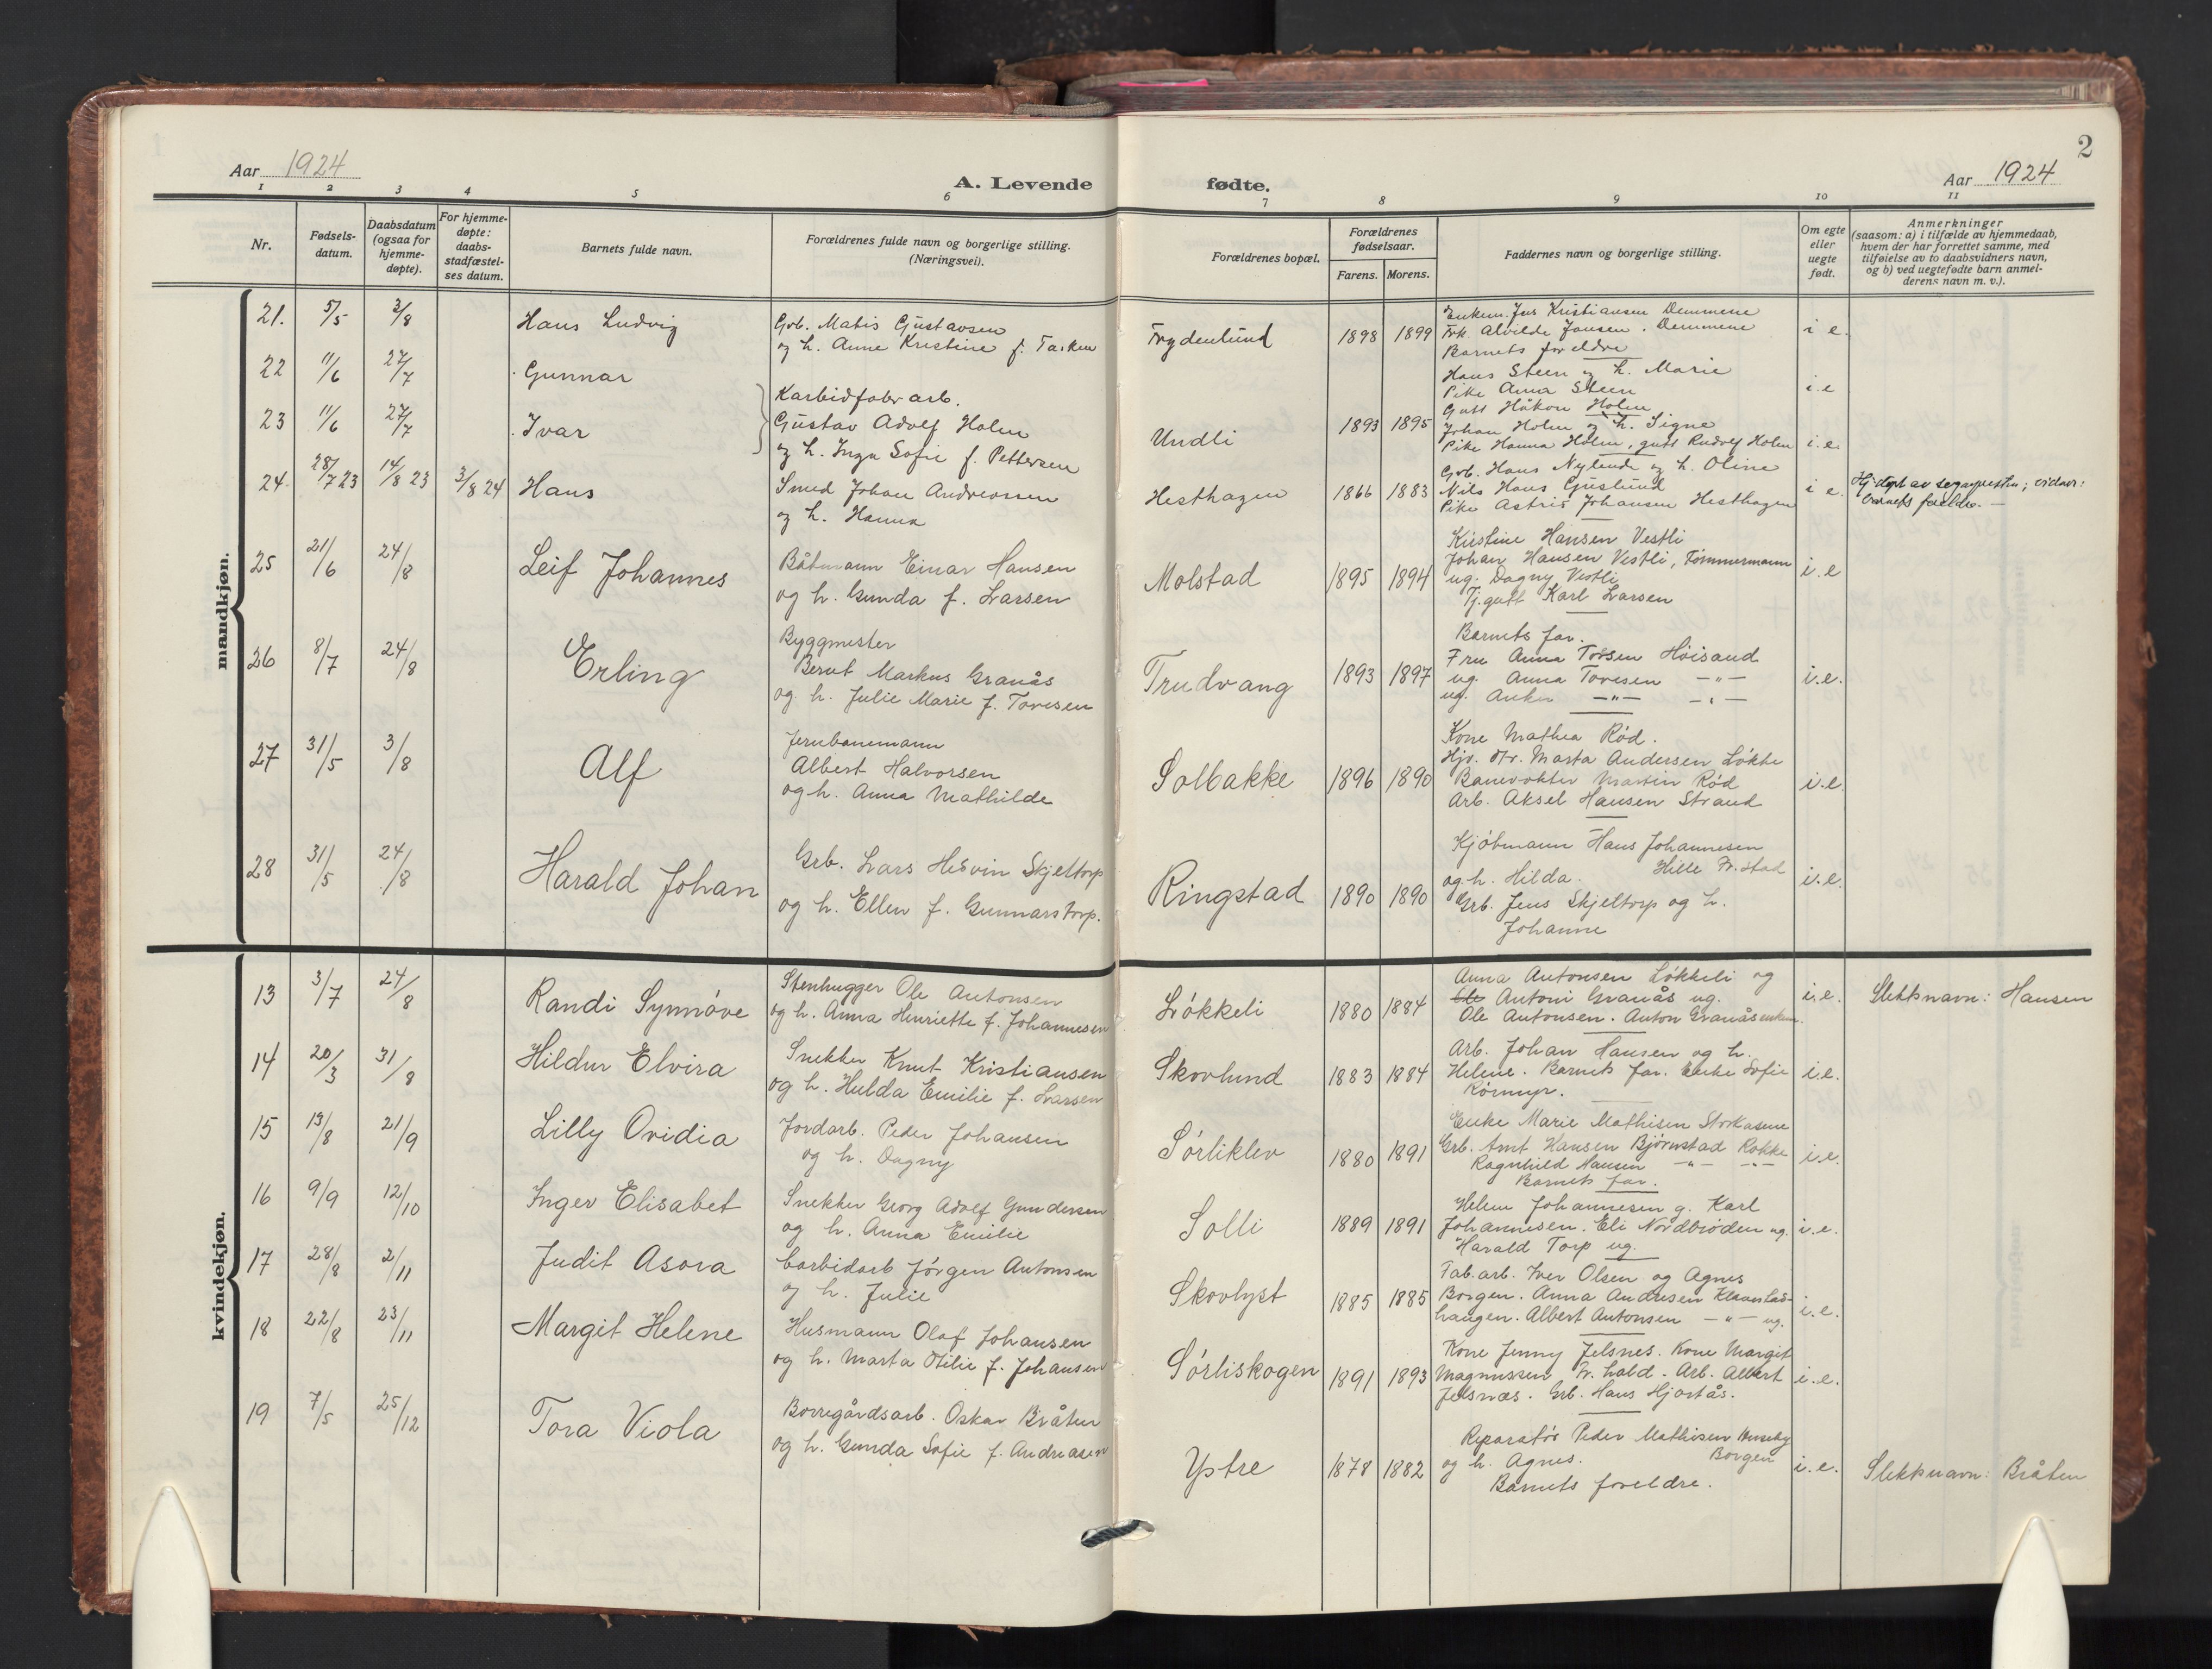 2
Aar 1924
A. Levende fødte.
Aar 1924
1 2 3 4 5 6 7 8 9 10 11
Nr.
Fødsels-
datum.
Daabsdatum
(ogsaa for
hjemme-
døpte).
For hjemme-
døpte:
daabs-
stadfæstel-
ses datum.
Barnets fulde navn.
Forældrenes fulde navn og borgerlige stilling.
(Næringsvei).
Forældrenes bopæl.
Forældrenes
fødselsaar.
Farens. Morens.
Faddernes navn og borgerlige stilling.
Om egte
eller
uegte
født.
Anmerkninger
(saasom: a) i tilfælde av hjemmedaab,
hvem der har forrettet samme, med
tilføielse av to daabsvidners navn,
og b) ved uegtefødte barn anmel-
derens navn m. v.).
mandkjøn.
21. 5/5 3/8 Hans Ludvig
Grb. Matis Gustavsen
og h. Anne Kristine f.
Frydenlund 1898 1899
Enkem. Jens Kristiansen Demmene
Frk. Alvilde Jansen. Demmene
Barnets foreldre
i e.
22 11/6 27/7 Gunnar
Hans Steen og h. Marie
Pike Anna Steen
Gutt Håkon Holm
i.e
23 11/6 27/7 Ivar
Karbidfabr arb.
Gustav Adolf Holm
og h. Inga Sofie f. Pettersen
Undli 1893 1895
Johan Holm og h. Signe
Pike Hanna Holm, gutt Rudolf Holm
i.e.
24 28/7 23 14/8 23 3/8 24 Hans
Smed Johan Andreassen
og h. Hanna
Hesthagen 1866 1883
Grb. Hans Nylende og h. Oline
Nils Hans Gjuslund
Pike Astrid Johansen Hesthagen
i e.
Hj.døpt av sognepresten; vidner:
barnets foreldre. —
25 21/6 24/8 Leif Johannes
Båtmann Einar Hansen
og h. Gunda f. Larsen
Molstad 1895 1894
Kristine Hansen Vestli
Johan Hansen Vestli, Tømmermann
ug. Dagny Vestli
Tj.gutt Karl Larsen
i.e
26 8/7 24/8 Erling
Byggmester
Bernt Markus Granås
og h. Julie Marie f. Toresen
Trudvang 1893 1897
Barnets far.
Fru Anna Torsen Høisand
ug. Anna Toresen — " —
ug. Anker — " — — " —
i.e.
27 31/5 3/8 Alf
Jernbanemann
Albert Halvorsen
og h. Anna Mathilde
Solbakke 1896 1890
Kone Mathea Rød.
Hjv. Marta Andersen Løkke
Banevokter Martin Rød
Arb. Aksel Hansen Strand
i.e.
28 31/5 24/8 Harald Johan
Grb. Lars Hesvin Skjeltorp
og h. Ellen f. Gunnarstorp.
Ringstad 1890 1890
Kjøbmann Hans Johannesen
og h. Hilda. Hille Fr.stad
Grb. Jens Skjeltorp og h.
Johanne
i.e.
kvindekjøn.
13 3/7 24/8 Randi Synnøve
Stenhugger Ole Antonsen
og h. Anna Henriette f. Johannesen
Løkkeli 1880 1884
Anna Antonsen Løkkeli og
Ole Antoni Granås ug.
Ole Antonsen. Anton Granås enkem.
i.e.
Slektsnavn: Hansen
14 20/3 31/8 Hildur Elvira
Snekker Knut Kristiansen
og h. Hulda Emilie f. Larsen
Skovlund 1883 1884
Arb. Johan Hansen og h.
Helene. Barnets far. Enke Sofie
Rørmyr.
i.e.
15 13/8 21/9 Lilly Ovidia
Jordarb. Peder Johansen
og h. Dagny
Sørliklev 1880 1891
Enke Marie Mathisen
Grb. Amt Hansen Bjørnstad Rokke
Ragnhild Hansen — " — — " —
Barnets far.
i.e.
16 9/9 12/10 Inger Elisabet
Snekker Georg Adolf Gundersen
og h. Anna Emilie
Solli 1889 1891
Helene Johannesen g. Karl
Johannesen. Eli Nordbrøden ug.
Harald Torp ug.
i.e.
17 28/8 2/11 Judit Asora
Carbidarb Jørgen Antonsen
og h. Julie
Skovlyst 1885 1885
Fab.arb. Iver Olsen og Agnes
Borgen. Anna Andresen Klavestad-
haugen. Albert Antonsen — " — ug.
i.e.
18 22/8 23/11 Margit Helene
Husmann Olaf Johansen
og h. Marta Otilie f. Johansen
Sørliskogen 1891 1893
Kone Jenny Jelsnes. Kone Margit
Magnussen Fr. hald. Arb. Albert
Jelsnæs. Grb. Hans Hjortås.
i.e.
19 7/5 25/12 Tora Viola
Borregårdsarb. Oskar Bråten
og h. Gunda Sofie f. Andreasen
Ystre 1878 1882
Reparatør Peder Mathisen Huseby
og h. Agnes. Borgen
Barnets foreldre.
i.e.
Slektsnavn: Bråten